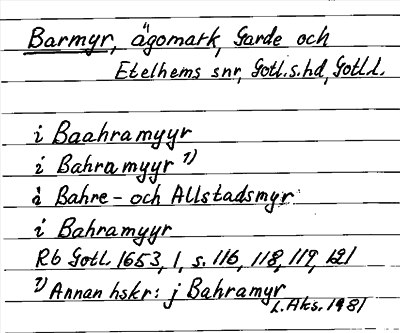 Barmyr, ägomark, Garde och
Etelhems snr, Gotl.s.hd, Gotl.l.
i Baahramyyr
i Bahramyyr 1)
å Bahre- och Allstadsmyr
i Bahramyyr
Rb Gotl. 1653, 1, s. 116, 118, 119, 121
1) Annan hskr: j Bahramyr
L. Aks. 1981